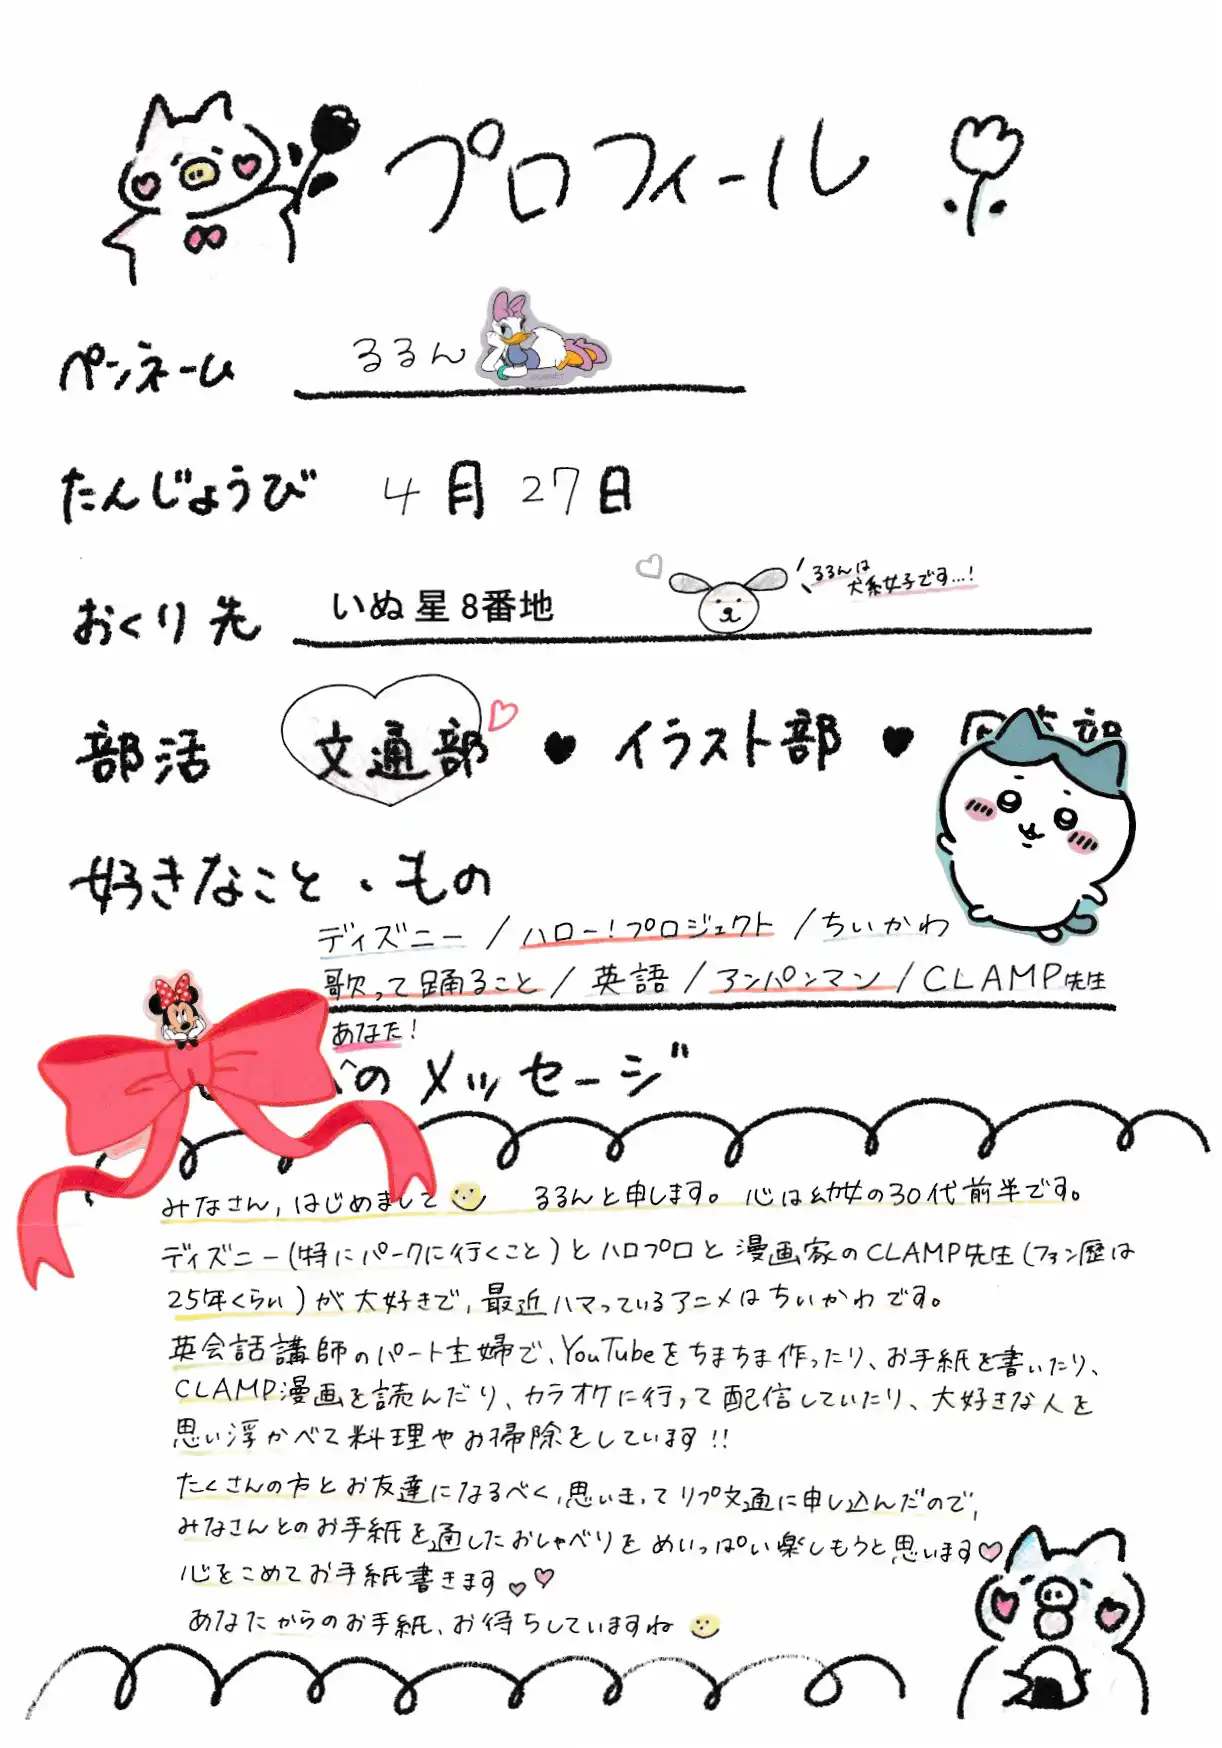 プロフィール
ペンネーム るるん
たんじょうび 4月27日
おくり先 いぬ星 8番地
るるんは
犬系女子です…!
部活 文通部 ♥ イラスト部 ♥
好きなこと・もの
ディズニー / ハロー!プロジェクト / ちいかわ
歌って踊ること / 英語 / アンパンマン / CLAMP先生
あなた!
へのメッセージ
みなさん, はじめまして るるんと申します。心は幼女の30代前半です。
ディズニー(特にパークに行くこと)とハロプロと漫画家のCLAMP先生(ファン歴は
25年くらい)が大好きで, 最近ハマっているアニメはちいかわです。
英会話講師のパート主婦で、YouTubeをちまちま作ったり、お手紙を書いたり、
CLAMP漫画を読んだり、カラオケに行って配信していたり、大好きな人を
思い浮かべて料理やお掃除をしています!!
たくさんの方とお友達になるべく, 思いきってリプ文通に申し込んだので,
みなさんとのお手紙を通したおしゃべりをめいっぱい楽しもうと思います♡
心をこめてお手紙書きます♡♡
あなたからのお手紙、お待ちしていますね